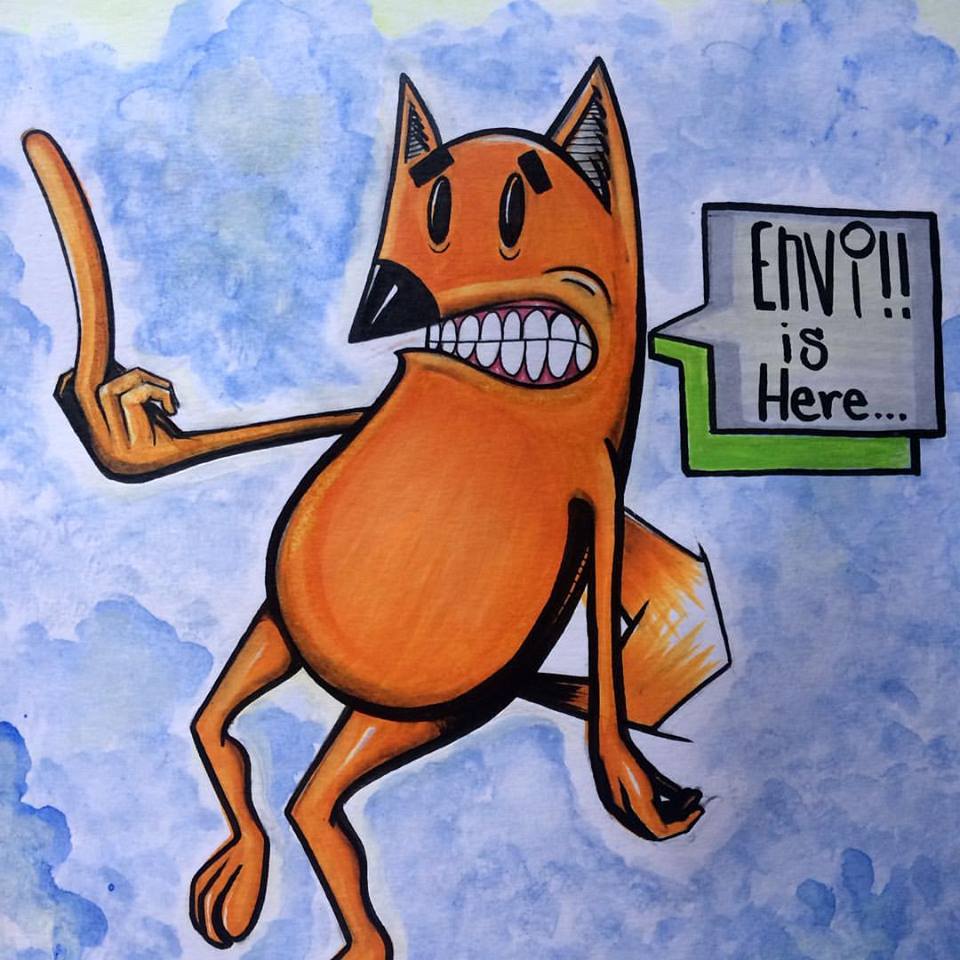 ENVi!!
is
Here...